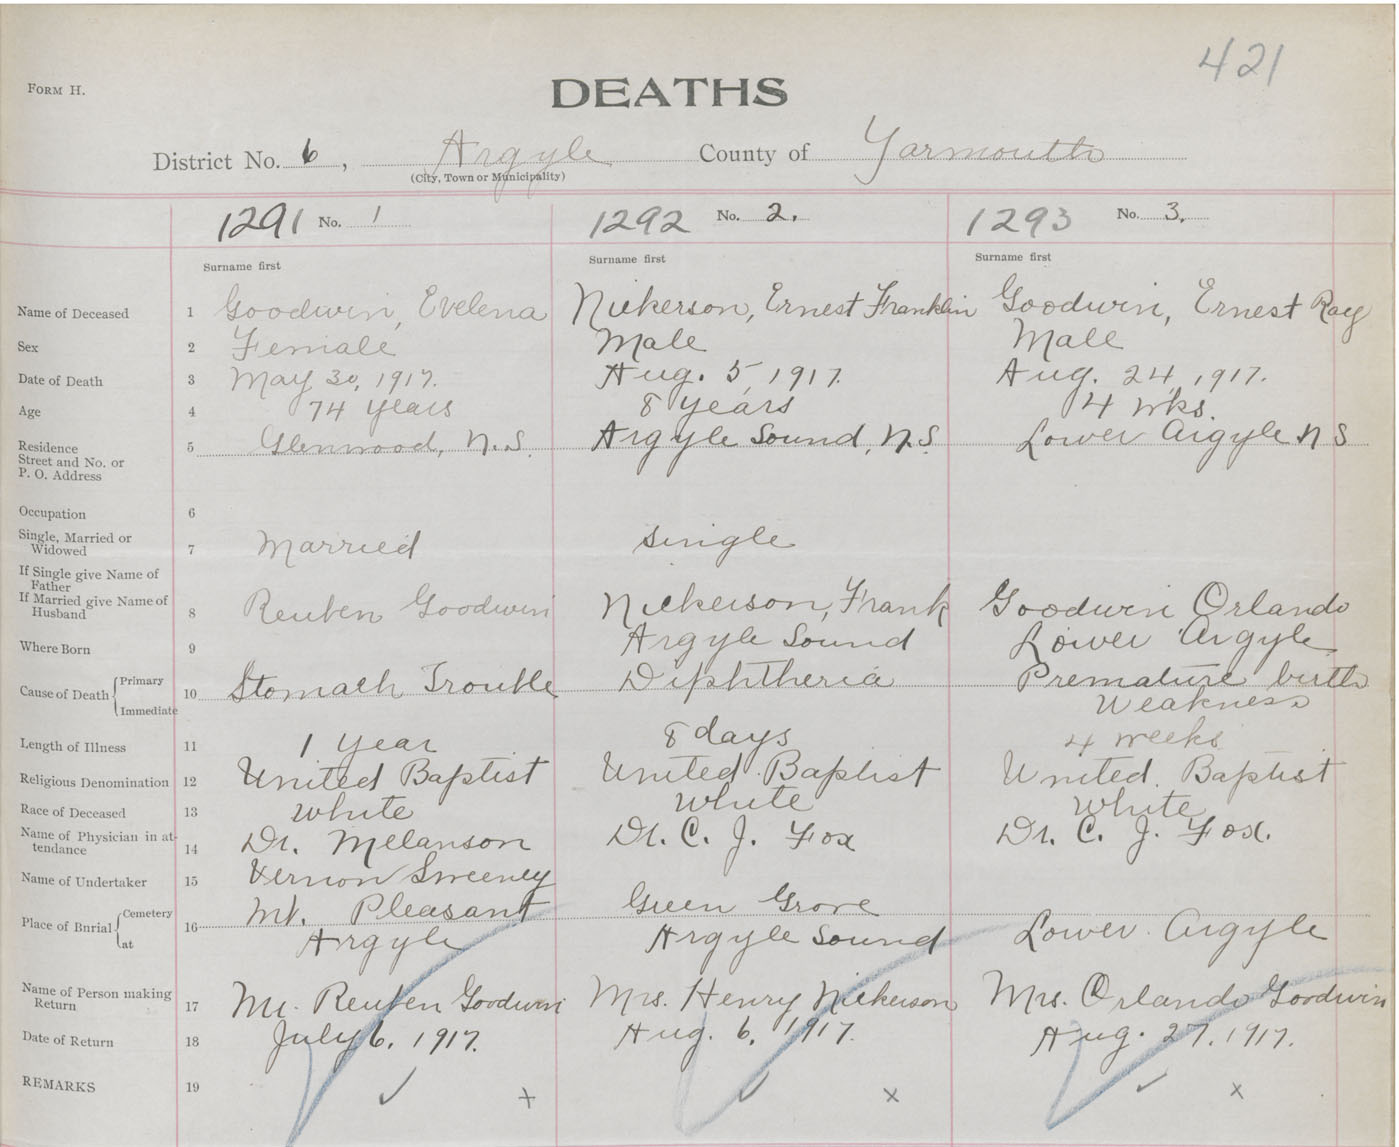 421
FORM H.
DEATHS
District No. 6, Argyle County of Yarmouth
(City, Town or Municipality)
1291 No. 1 1292 No. 2. 1293 No. 3.
Surname first Surname first Surname first
Name of Deceased 1 Goodwin, Evelena Nickerson, Ernest Franklin Goodwin, Ernest Ray
Sex 2 Female Male Male
Date of Death 3 May 30, 1917. Aug. 5, 1917. Aug. 24, 1917.
Age 4 74 years 8 years 4 wks.
Residence
Street and No. or
P. O. Address 5 Glenwood, N.S. Argyle Sound, N.S. Lower Argyle N S
Occupation 6
Single, Married or
Widowed 7 Married Single
If Single give Name of
Father
If Married give Name of
Husband 8 Reuben Goodwin Nickerson, Frank Goodwin Orlando
Where Born 9 Argyle Sound Lower Argyle
Cause of Death { Primary
Immediate 10 Stomach Trouble Diphtheria Premature birth
Weakness
Length of Illness 11 1 year 8 days 4 weeks
Religious Denomination 12 United Baptist United Baptist United Baptist
Race of Deceased 13 White White White
Name of Physician in at-
tendance 14 Dr. Melanson Dr. C. J. Fox Dr. C. J. Fox.
Name of Undertaker 15 Vernon Sweeney
Place of Burial { Cemetery
at 16 Mt. Pleasant Green Grove
Argyle Argyle Sound Lower Argyle
Name of Person making
Return 17 Mr. Reuben Goodwin Mrs. Henry Nickerson Mrs. Orlando Goodwin
Date of Return 18 July 6, 1917. Aug. 6, 1917. Aug. 27, 1917.
REMARKS 19 ✓ + ✓ x ✓ x